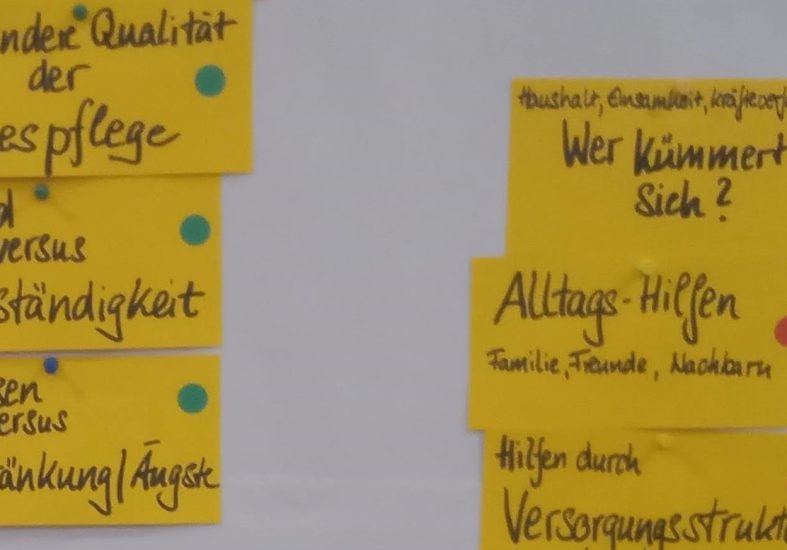 ndere Qualität
der
espflege
d
versus
ständigkeit
sen
ersus
änkung/Ängste
Haushalt, Einsamkeit, kräftever
Wer kümmert
sich?
Alltags-Hilfen
Familie, Freunde, Nachbarn
Hilfen durch
Versorgungsstrukt